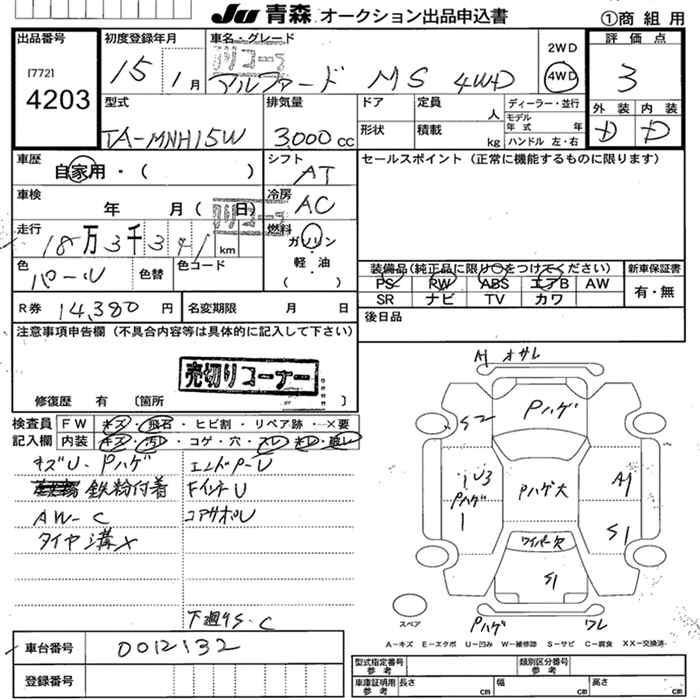 JU 青森 オークション出品申込書 ①商組用
出品番号
(772)
4203
初度登録年月
15 1月
車名・グレード
アルファード MS 4WD
2WD
4WD
評価点
3
外装 内装
D D
型式
TA-MNH15W
排気量
3.000 cc
ドア
形状
定員 人
積載 kg
ディーラー・並行
モデル年式 年
ハンドル 左・右
車歴
自家用・( )
シフト
AT
セールスポイント (正常に機能するものに限ります)
車検
年 月 ( 日)
冷房
AC
走行
18万3千391km
燃料
ガソリン
軽・油
( )
色
パール
色替
色コード
装備品(純正品に限り○をつけてください)
PS RW ABS エアB AW
SR ナビ TV カワ
新車保証書
有・無
R券 14,380 円
名変期限 月 日
後日品
注意事項申告欄 (不具合内容等は具体的に記入して下さい)
売切りコーナー
修復歴 有 〔箇所
検査員記入欄
FW キズ・飛石・ヒビ割・リペア跡・×要
内装 キズ・汚レ・コゲ・穴・スレ
キズU・Pハゲ
エンドP-U
鉄粉付着
FインナーU
AW-C
コアサポU
タイヤ溝×
下廻りS・C
A1 オサレ
S2
Pハゲ
U3
Pハゲ
1
Pハゲ大
A1
S1
ワイパー欠
S1
スペア
Pハゲ
ワレ
A-キズ E-エクボ U-凹み W-補修跡 S-サビ C-腐食 XX-交換済
車台番号
0012132
登録番号
型式指定番号 参考
類別区分番号 参考
車庫証明用 参考
長さ cm
幅 cm
高さ cm